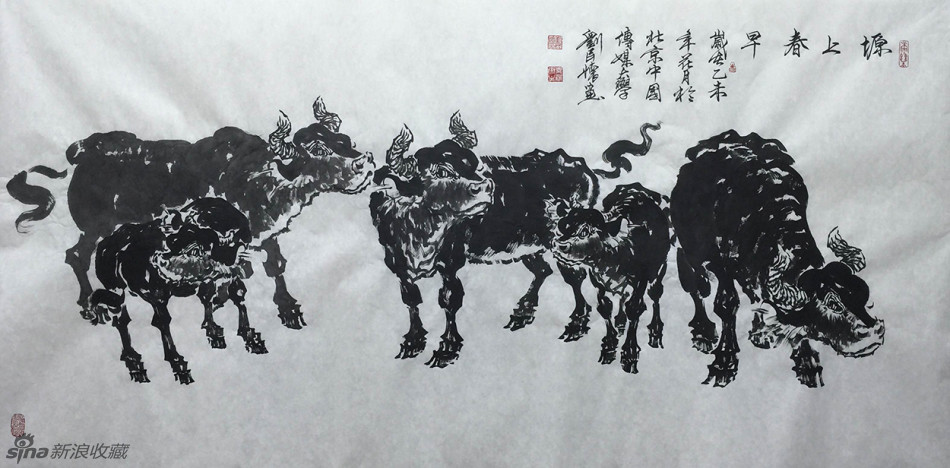 塬上春早
乙未
年花月於
北京中國
傳媒大學
劉
sina新浪收藏